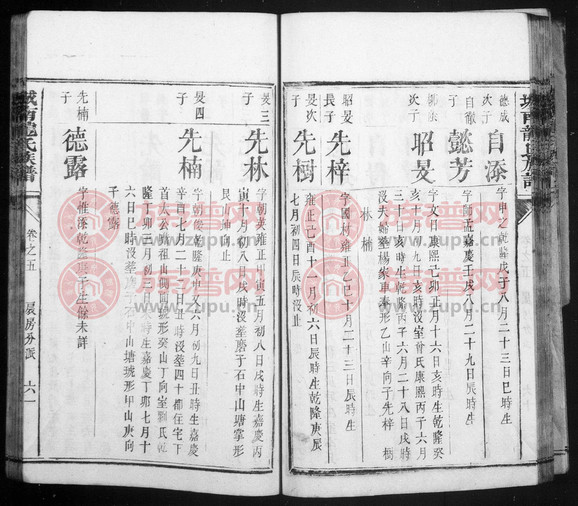 德成
次子
自添
字甲之乾隆戊子八月二十三日巳時生
自徹
次子
懿芳
字師孟嘉慶壬戌八月二十九日辰時生
次子
昭旻
字文日康熙己卯正月十六日亥時生乾隆癸
亥十月十九日亥時沒室曾氏康熙丙子六月
三十日亥時生乾隆丙子六月二十八日戌時
沒夫婦塟楊家申湊形乙山辛向子先梓 樹
林 楠
昭旻
長子
先梓
字國材雍正乙巳十月初六日辰時生
旻次
子
先樹
雍正己酉十一月初六日辰時生乾隆庚辰
七月初四日辰時沒
旻三
子
先林
字朝英雍正甲寅五月初八日戌時生嘉慶丙
寅十月初八日戌時沒塟磨子石中山塘掌形
艮山坤向止
旻四
子
先楠
字朝俊乾隆庚申又六月初九日丑時生嘉慶
辛酉七月二十三日丑時沒塟四十都住宅下
首太公嶺祖山獅形癸山丁向室劉氏乾
隆丁卯三月初三日時生嘉慶丁卯七月十
六日巳時沒塟磨子石中山塘琥形甲山庚向
子德露
先楠
子
德露
字惟添乾隆庚子生餘未詳
城南龍氏族譜
卷之五
房分派
六一